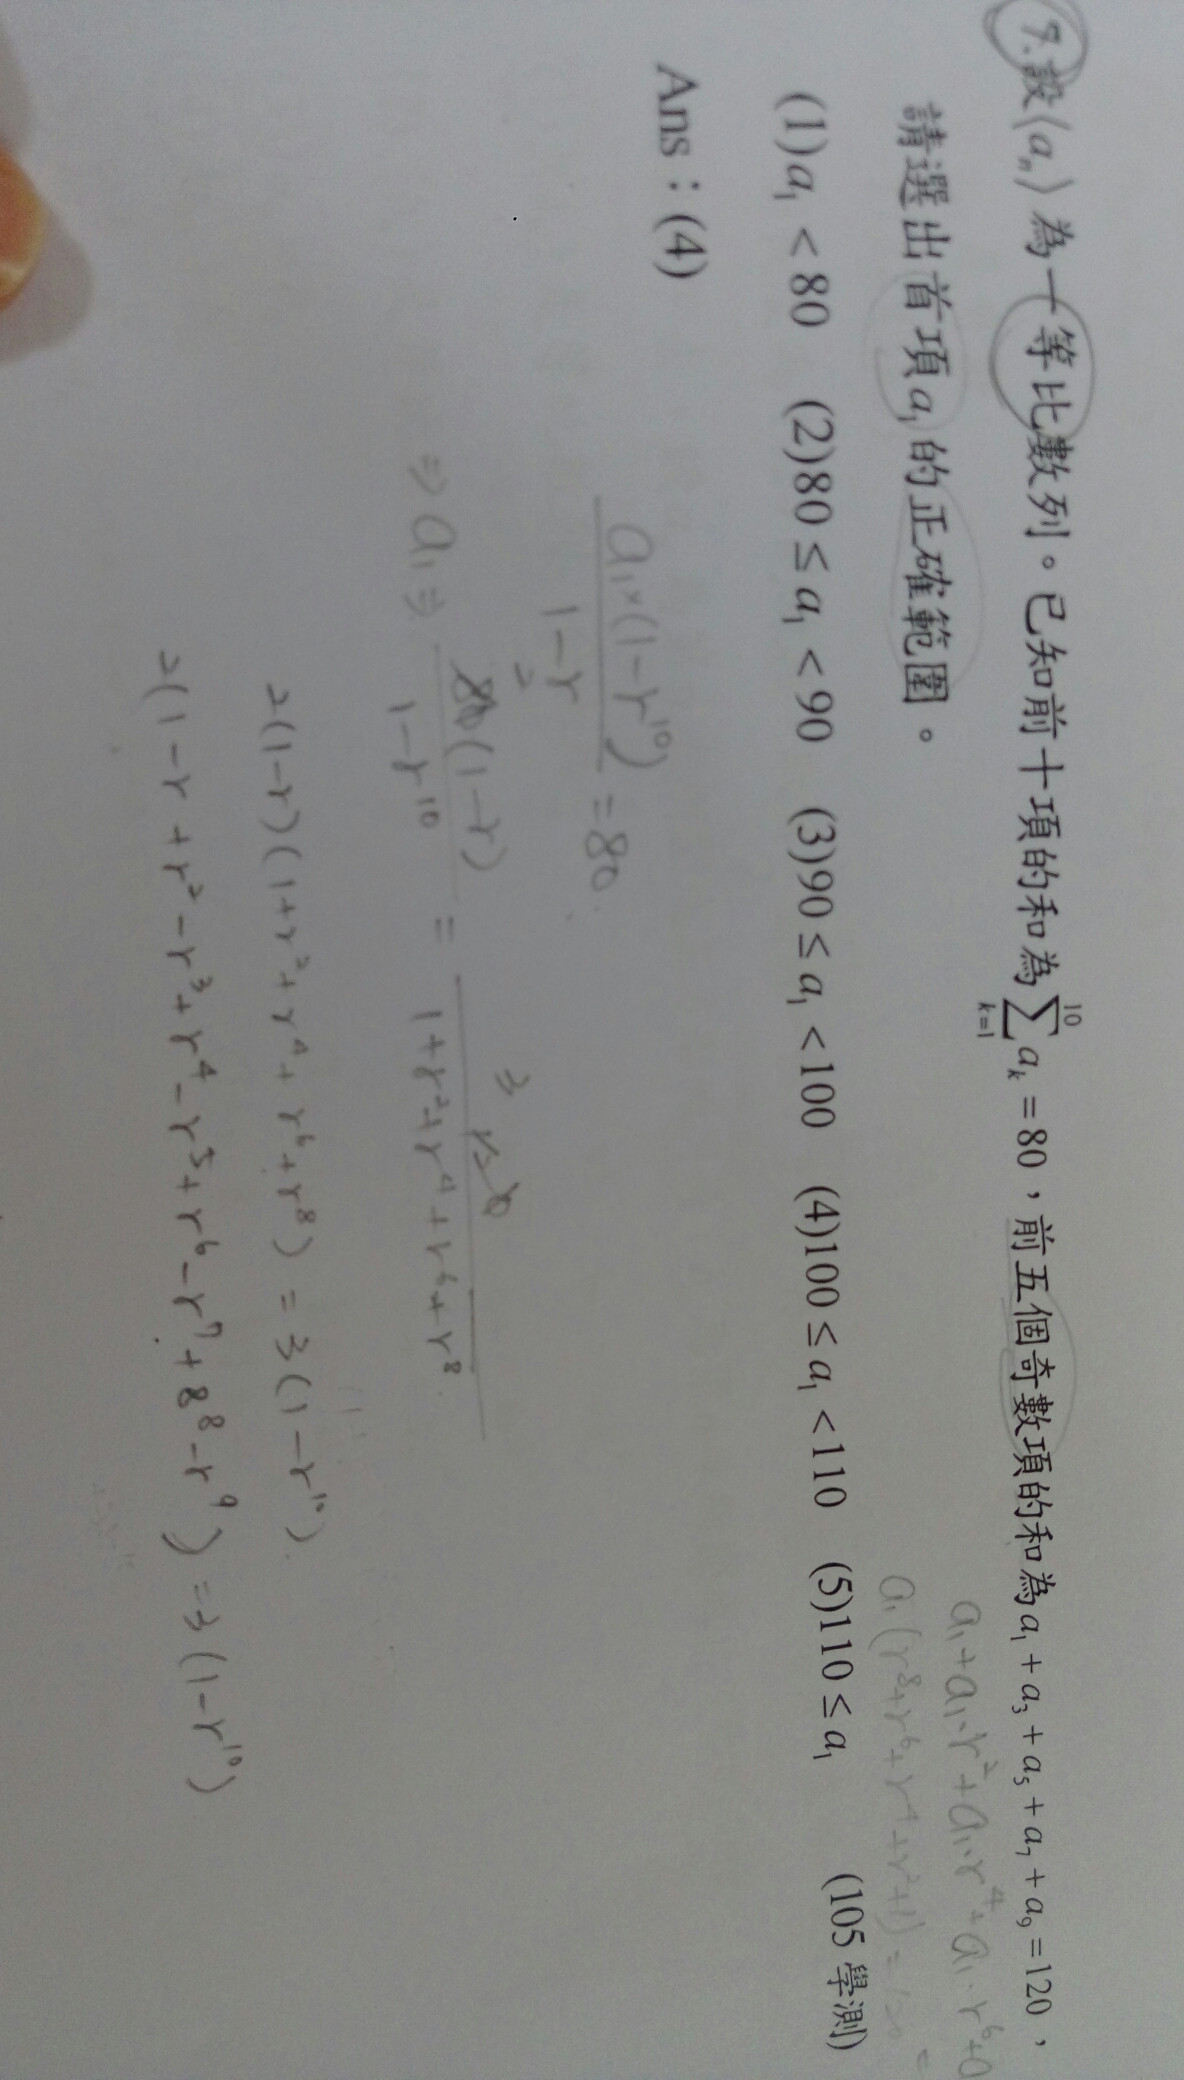 9.設⟨aₙ⟩為一等比數列。已知前十項的和為∑_{k=1}^{10} aₖ=80，前五個奇數項的和為a₁+a₃+a₅+a₇+a₉=120，
a₁+a₁·r²+a₁·r⁴+a₁·r⁶+a
請選出首項a₁的正確範圍。
a₁(r⁸+r⁶+r⁴+r²+1)=120
(1)a₁<80 (2)80≤a₁<90 (3)90≤a₁<100 (4)100≤a₁<110 (5)110≤a₁ (105學測)
Ans：(4)
a₁×(1-r¹⁰)/1-r=80
⇒a₁⇒80(1-r)/1-r¹⁰=120/1+r²+r⁴+r⁶+r⁸
2 3
2(1-r)(1+r²+r⁴+r⁶+r⁸)=3(1-r¹⁰)
2(1-r+r²-r³+r⁴-r⁵+r⁶-r⁷+8⁸-r⁹)=3(1-r¹⁰)